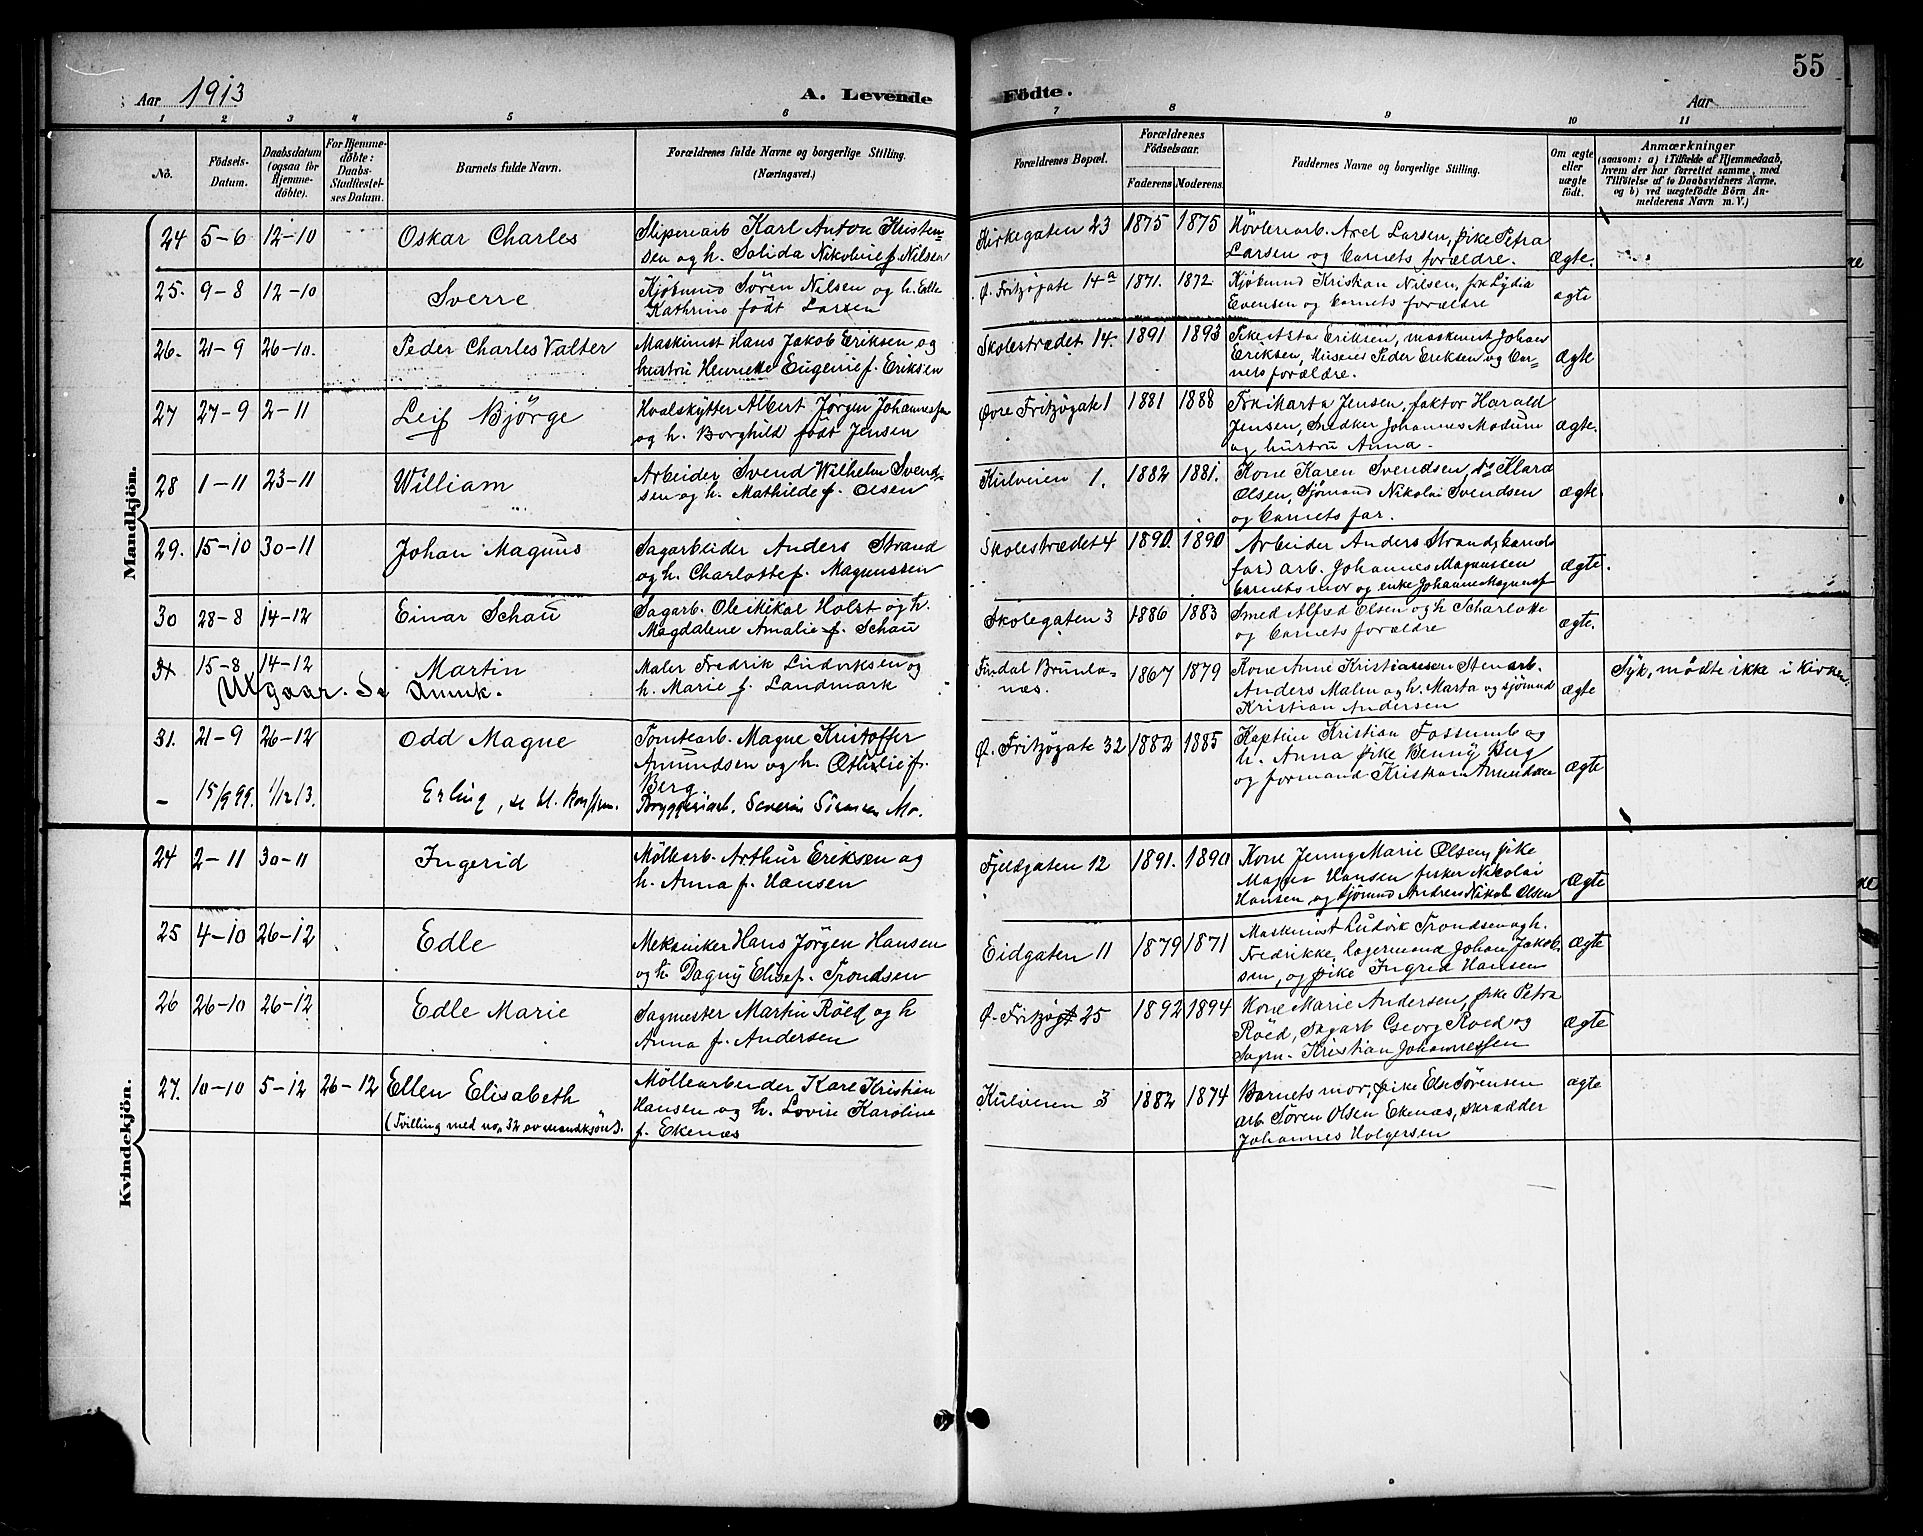 55
Aar 1913
A. Levende
Födte.
Aar
1 2 3 4 5 6 7 8 9 10 11
No.
Födsels-
Datum.
Daabsdatum
(ogsaa for
Hjemme-
döbte).
For Hjemme-
döbte:
Daabs-
Stadfæstel-
ses Datum.
Barnets fulde Navn.
Forældrenes fulde Navne og borgerlige Stilling.
(Næringsvei.)
Forældrenes Bopæl.
Forældrenes
Födselsaar.
Faderens Moderens.
Faddernes Navne og borgerlige Stilling.
Om ægte
eller
uægte
født.
Anmærkninger
(saasom: a) i Tilfælde af Hjemmedaab,
hvem der har forrettet samme, med
Tilföielse af to Daabsvidners Navne,
og b) ved uægtefödte Börn An-
melderens Navn m. V.)
Mandkjön.
24 5-6 12-10 Oskar Charles
Sliperiarb Karl Anton Kristen-
sen og h. Solida Nikoline f. Nilsen
Kirkegaten 23 1875 1875
Høvleriarb. Axel Larsen, pike Petra
Larsen og barnets forældre.
ægte.
25. 9-8 12-10 Sverre
Kjöbmd Sören Nilsen og h. Edle
Kathrine födt Larsen
Ø. Fritzögate 14a 1871. 1872
Kjøbmand Kristian Nilsen, frk Lydia
Evensen og barnets forældre
ægte
26. 21-9 26-10. Peder Charles Valter
Maskinist Hans Jakob Eriksen og
hustru Henriette Eugenie f. Eriksen
Skolestrædet 14 1891 1893
Pike Asta Eriksen, maskinist Johan
Eriksen, Huseier Peder Eriksen og bar-
nets forældre.
ægte
27 27-9 2-11 Leif Bjørge
Hvalskytter Albert Jørgen Johannessen
og h. Borghild födt Jensen
Øvre Fritzögate 1 1881 1888
Frk Marta Jensen, faktor Harald
Jensen, Snedker Johannes Modum
og hustru Anna.
ægte.
28 1-11 23-11 William
Arbeider Svend Wilhelm Svend-
sen og h. Mathilde f. Olsen
Kulveien 1. 1882 1881.
Kone Karen Svendsen, do Klara
Olsen, Sjømand Nikolai Svendsen
og barnets far.
ægte.
29. 15-10 30-11 Johan Magnus
Sagarbeider Anders Strand
og h. Charlotte f. Magnussen
Skolestrædet 4 1890. 1890
Arbeider Anders Strand, barnets
far, arb. Johannes Magnussen
barnets mor og enke Johanne Magnuss
ægte.
30 28-8 14-12 Einar Schau
Sagarb. Ole Mikal Holst og h.
Magdalene Amalie f. Schau
Skolegaten 3 1886 1883
Smed Alfred Olsen og h Scharlotte
og barnets forældre
ægte.
31 15-8 14-12 Martin
Utgaar. Se Anmk.
Maler Fredrik Ludviksen og
h. Marie f. Landmark
Findal Brunla-
næs. 1867 1879
Kone Anne Kristiansen Stenarb.
Anders Malm og h. Marta og sjömnd
Kristian Andersen
ægte
Syk, mödte ikke i kirken.
31. 21-9 26-12 Odd Magne
Tomtearb. Magne Kristoffer
Amundsen og h. Othilie f.
Berg
Ø. Fritzögate 32 1882 1885
Kaptein Kristian Fossum og
h. Anna pike Benny Berg
og formand Kristian Amundsen
ægte
- 15/9 99. 1/12 13. Erling, se
Bryggeriarb. Severin Sörensen Mo.
Kvindekjön.
24 2-11 30-11 Ingerid
Møllearb. Arthur Eriksen og
h. Anna f. Hansen
Fjeldgaten 12 1891. 1890
Kone Jenny Marie Olsen, pike
Magna Hansen fisker Nikolai
Hansen og sjömand Andreas Nikolai Olsen
ægte
25 4-10 26-12 Edle
Mekaniker Hans Jörgen Hansen
og h. Dagny Elise f. Trondsen
Eidgaten 11 1879 1871
Maskinist Ludvik Trondsen og h.
Fredrikke, lagermand Johan Jakob-
sen, og pike Ingrid Hansen
ægte
26 26-10 26-12 Edle Marie
Sagmester Martin Röed og h
Anna f. Andersen
Ø. Fritzögt 25 1892 1894
Kone Marie Andersen, pike Petra
Röed, Sagarb Georg Roed og
Sagm. Kristian Johannessen
ægte
27. 10-10 5-12 26-12 Ellen Elisabeth
(Tvilling med no. 32 av mandkjön).
Møllearbeider Karl Kristian
Hansen og h. Lovise Karoline
f. Ekenæs
Kulveien 3 1882 1874
Barnets mor, pike Else Sörensen
arb Sören Olsen Ekenæs, skrædder
Johannes Holgersen
ægte